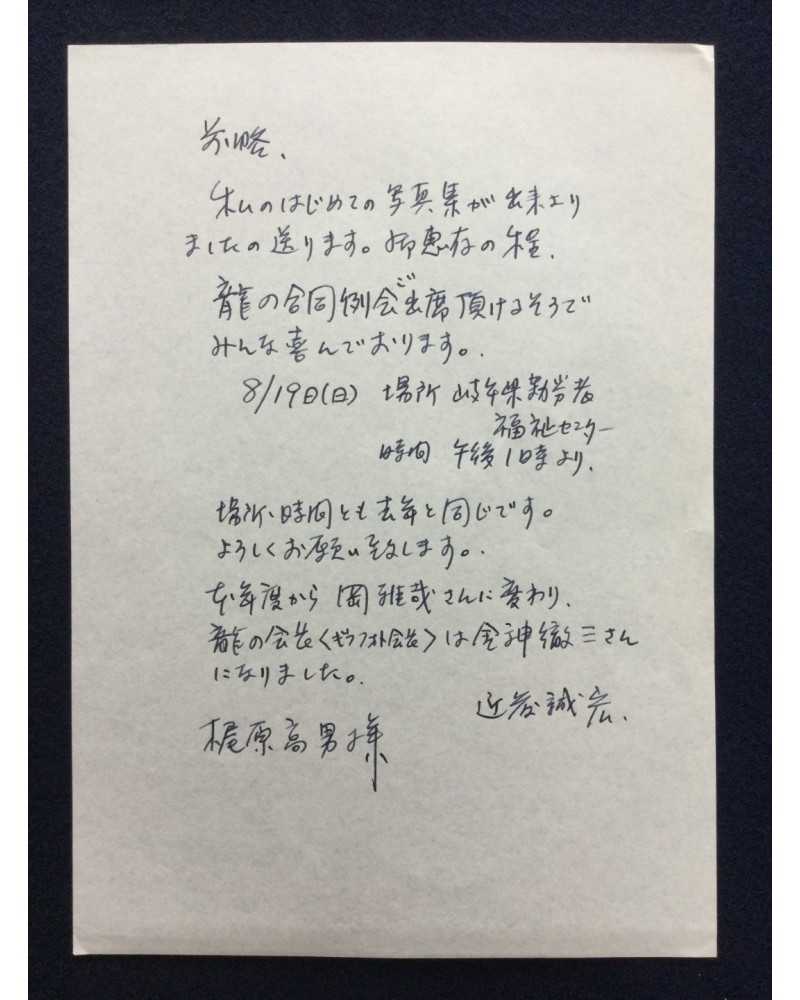 前略、
私のはじめての写真集が出来上り
ましたの送ります。御恵存の程、
龍の合同例会ご出席頂けるそうで
みんな喜んでおります。
8/19日(日) 場所 岐阜県勤労者
福祉センター
時間 午後1時より、
場所、時間とも去年と同じです。
よろしくお願い致します。
本年度から岡雅哉さんに変わり、
龍の会長〈ギフフォト会長〉は金神徹三さん
になりました。
近藤誠宏、
梶原高男様